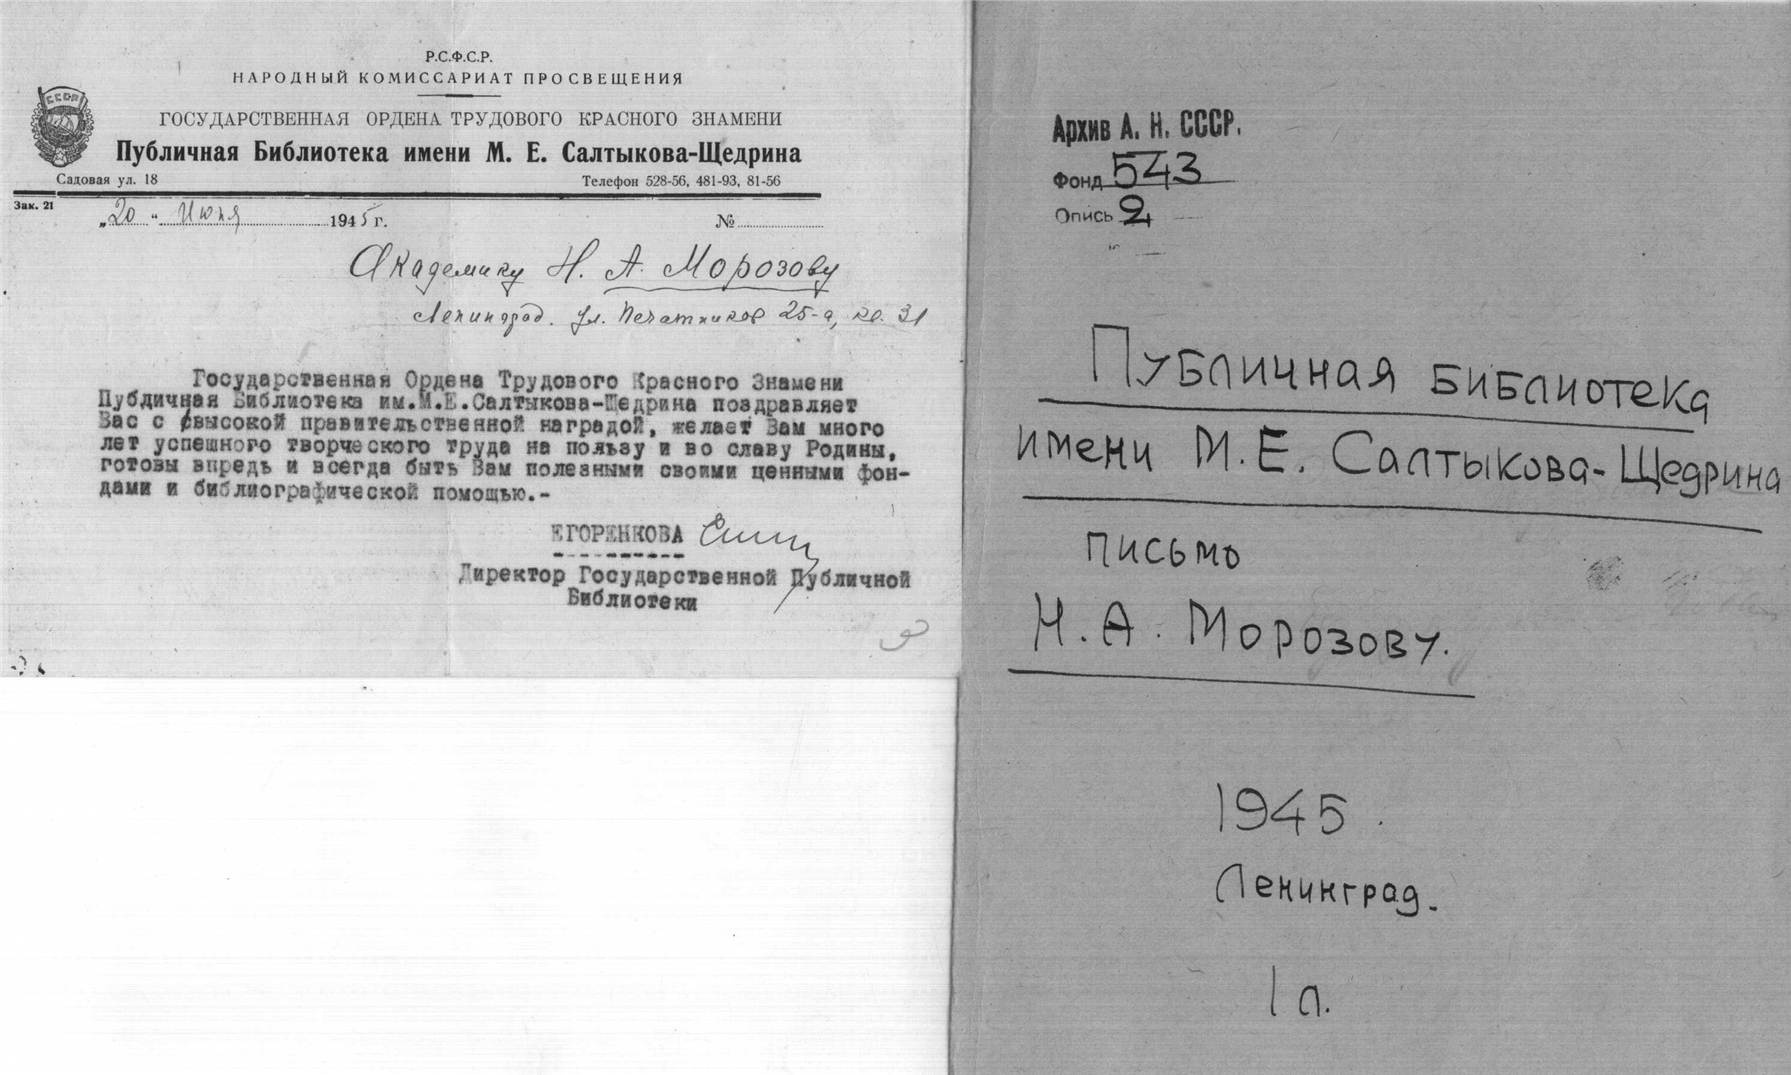 Р.С.Ф.С.Р.
НАРОДНЫЙ КОМИССАРИАТ ПРОСВЕЩЕНИЯ
СССР
ГОСУДАРСТВЕННАЯ ОРДЕНА ТРУДОВОГО КРАСНОГО ЗНАМЕНИ
Публичная Библиотека имени М. Е. Салтыкова-Щедрина
Садовая ул. 18 Телефон 528-56, 481-93, 81-56
Зак. 21
„20" Июня 1945 г. №
Академику Н. А. Морозову
Ленинград. ул. Печатников 25-а, кв. 31
Государственная Ордена Трудового Красного Знамени
Публичная Библиотека им.М.Е.Салтыкова-Щедрина поздравляет
Вас с высокой правительственной наградой, желает Вам много
лет успешного творческого труда на пользу и во славу Родины,
готовы впредь и всегда быть Вам полезными своими ценными фон-
дами и библиографической помощью.-
ЕГОРЕНКОВА
Директор Государственной Публичной
Библиотеки
Архив А. Н. СССР.
Фонд 543
Опись 2
Публичная библиотека
имени М.Е. Салтыкова-Щедрина
письмо
Н.А. Морозову.
1945.
Ленинград.
1 л.